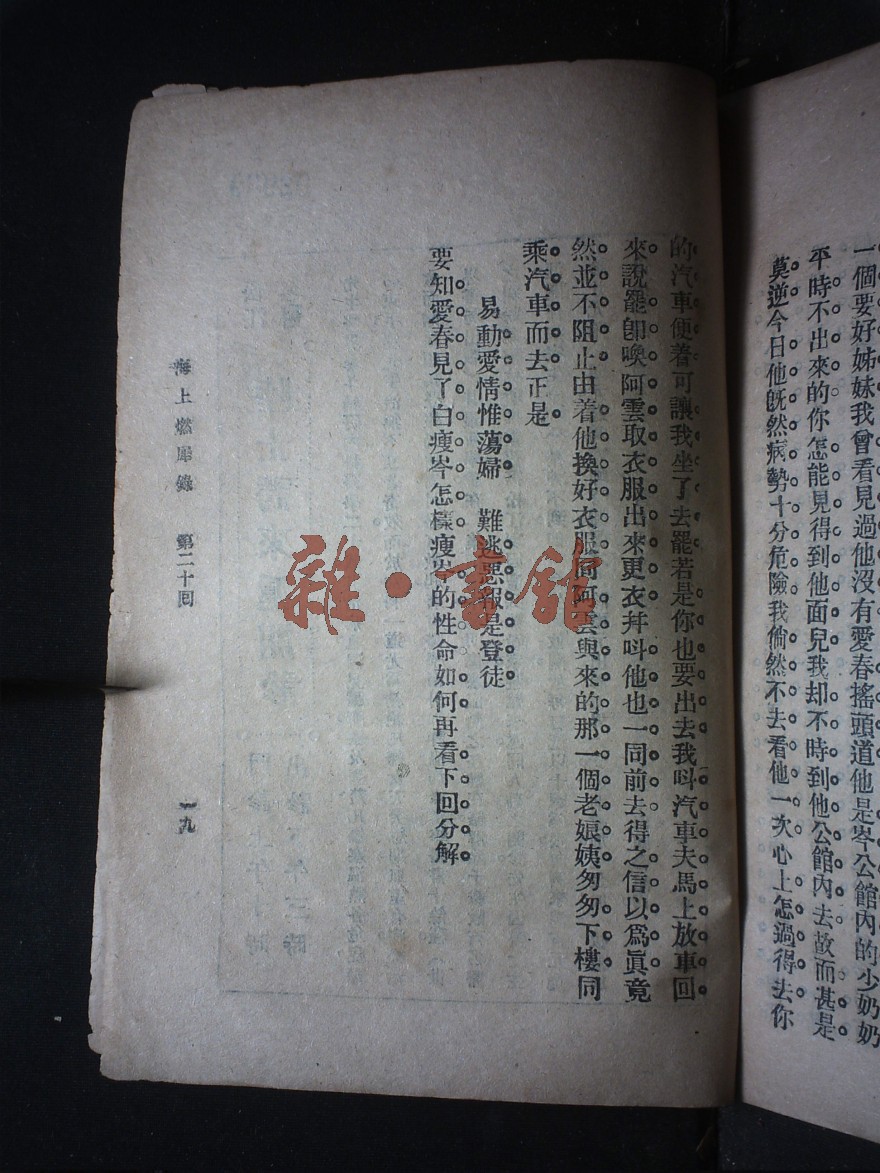 一個要好姊妹我曾看見過他沒有愛春搖頭道他是岑公館內的少奶奶
平時不出來的你怎能見得到他面兒我却不時到他公館內去故而甚是
莫逆今日他旣然病勢十分危險我倘然不去看他一次心上怎過得去你
的汽車便着可讓我坐了去罷若是你也要出去我呌汽車夫馬上放車回
來說罷卽喚阿雲取衣服出來更衣幷呌他也一同前去得之信以爲眞竟
然並不阻止由着他換好衣服同阿雲與來的那一個老娘姨匆匆下樓同
乘汽車而去正是
易動愛情惟蕩婦 難逃惡報是登徒
要知愛春見了白瘦岑怎樣瘦岑的性命如何再看下回分解
海上燃犀錄 第二十回 一九
雜·書館